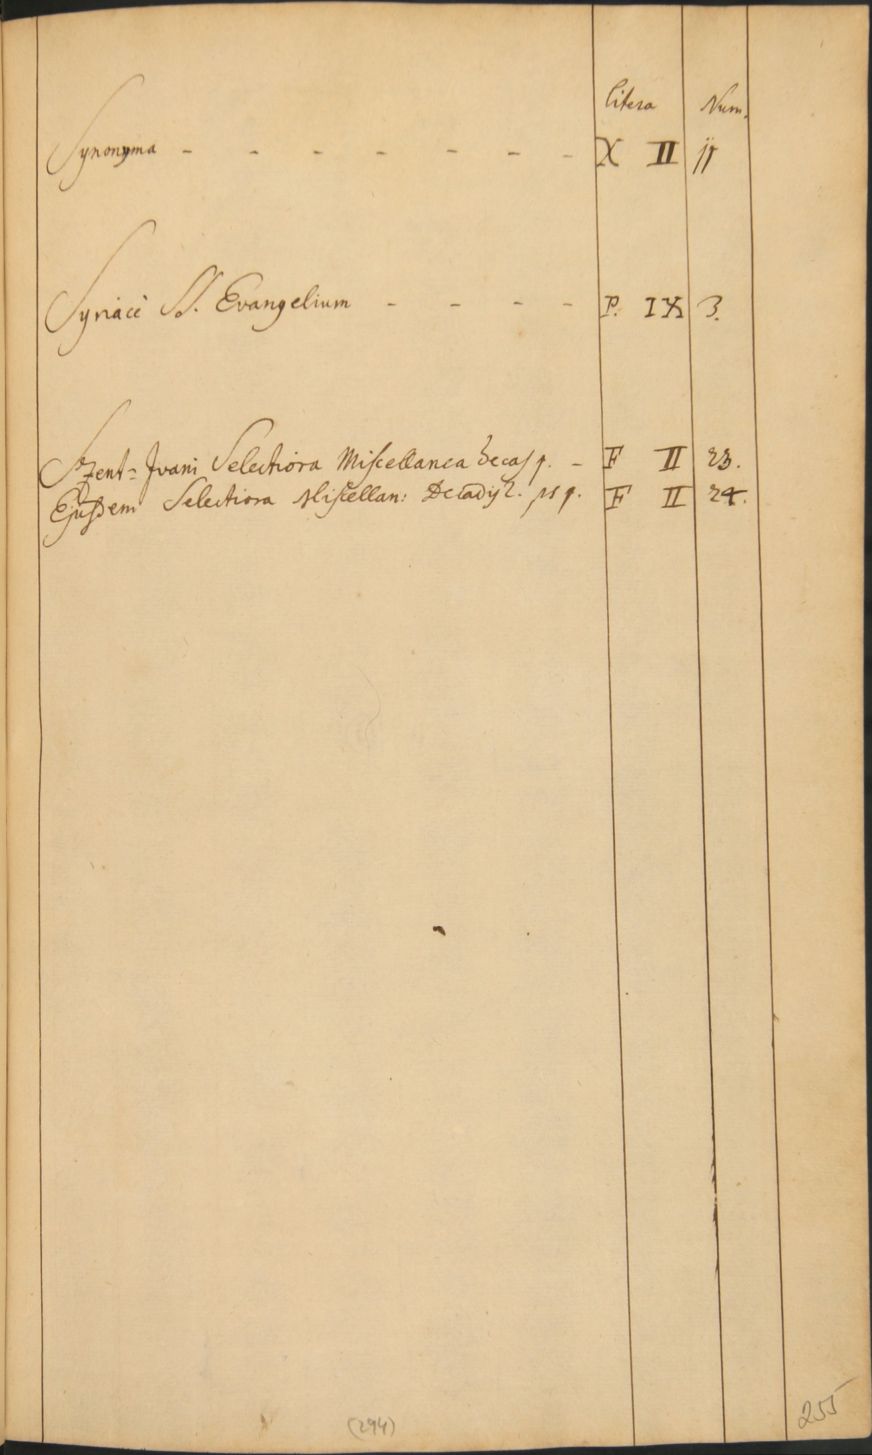 Litera Num.
Synonyma - - - - - - - X II 11
Syriacè SS. Evangelium - - - - P. IX 3.
Szent=Jvani Selectiora Miscellanea Decas 1. - F II 23.
Ejusdem Selectiora Miscellan: Decadis 2. ps 1. F II 24.
(294)
255